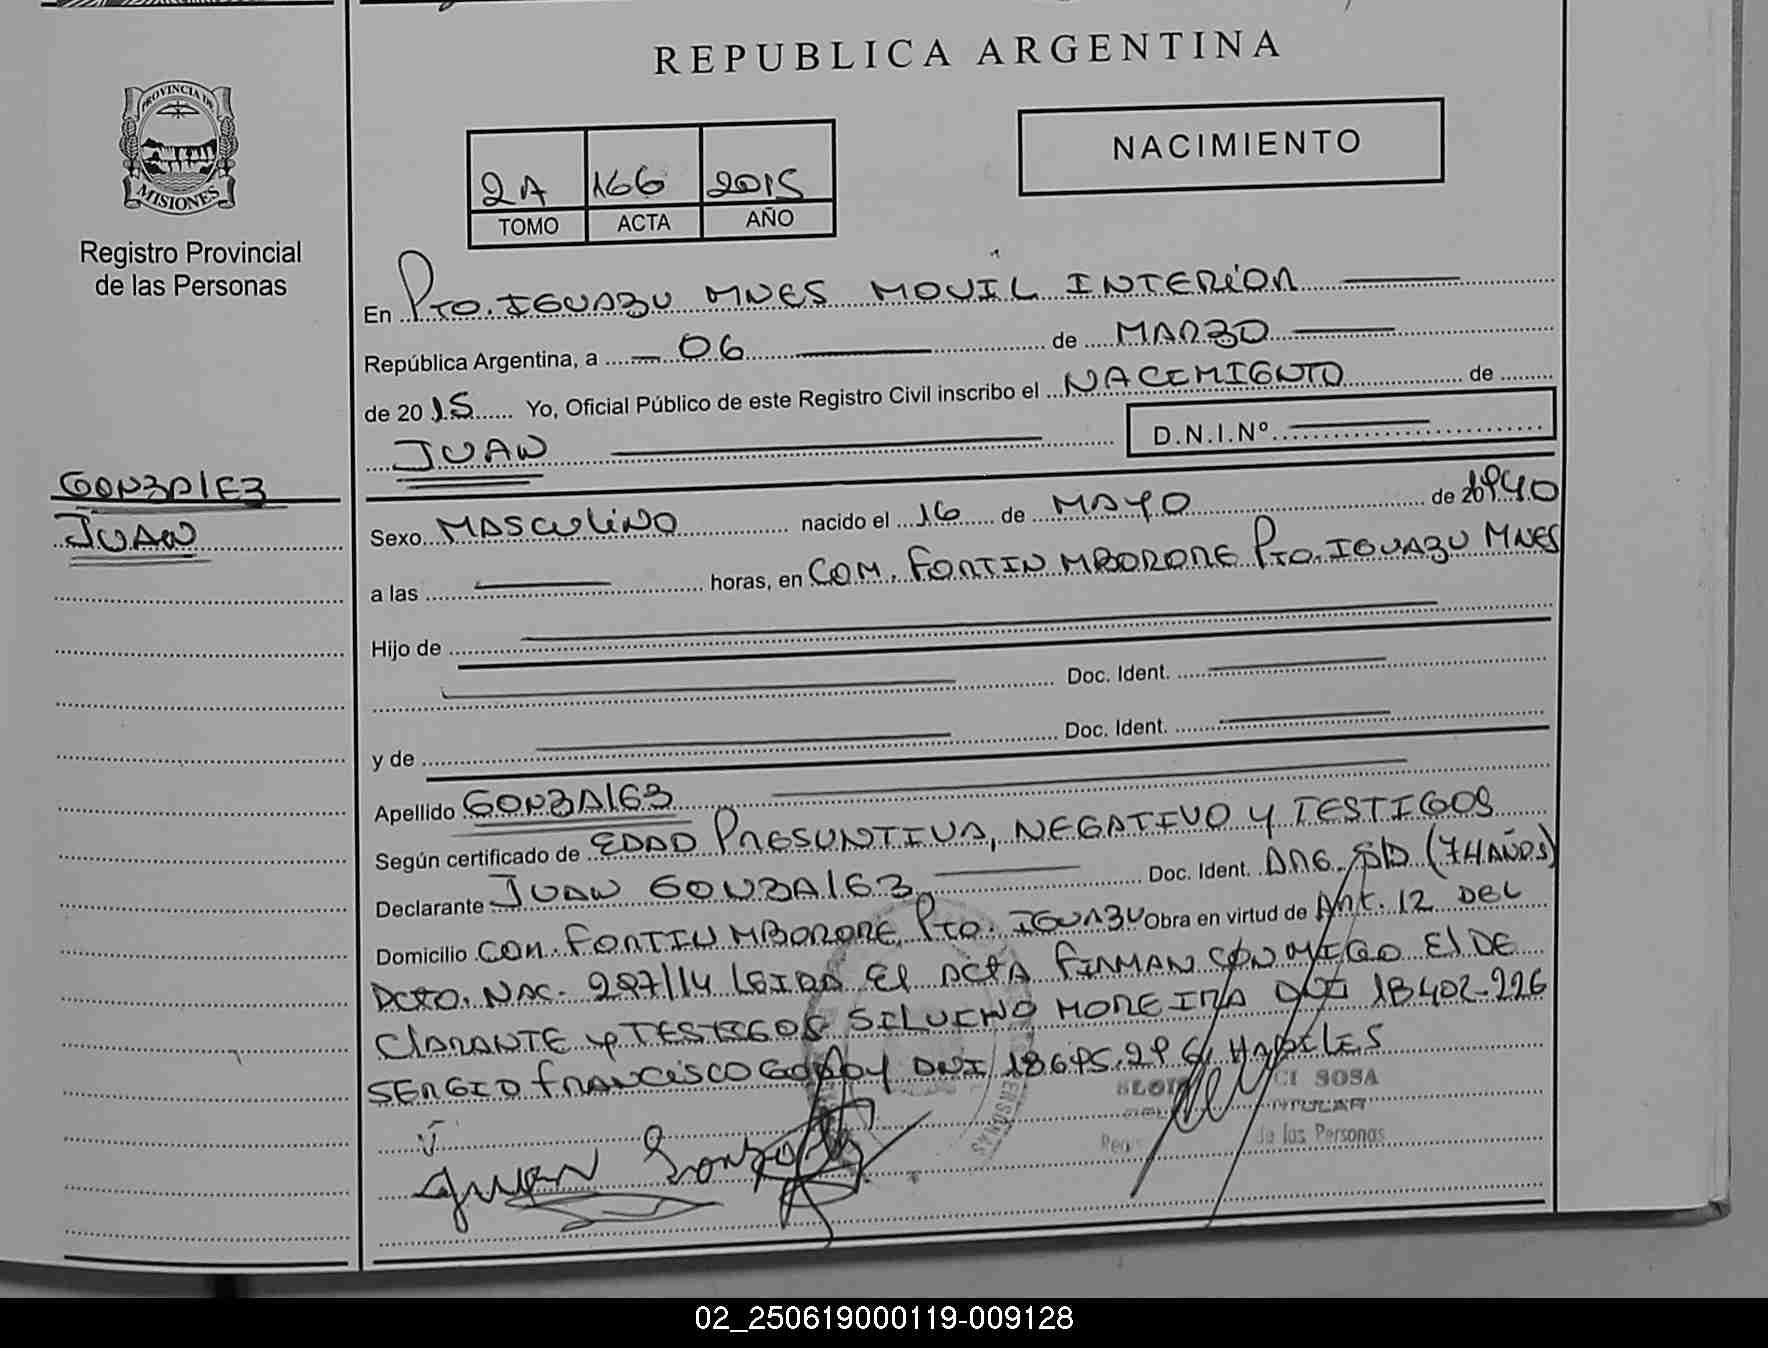 REPUBLICA ARGENTINA
PROVINCIA DE
MISIONES
Registro Provincial
de las Personas
NACIMIENTO
2A 166 2015
TOMO ACTA AÑO
En Pto. IGUAZU MNES MOVIL INTERIOR
República Argentina, a 06 de MARZO
de 2015 Yo, Oficial Público de este Registro Civil inscribo el NACIMIENTO de
JUAN D.N.I.Nº
GONZALEZ
JUAN
Sexo MASCULINO nacido el 16 de MAYO de 1940
a las horas, en COM. FORTIN MBORORE Pto. IGUAZU MNES
Hijo de
Doc. Ident.
y de Doc. Ident.
Apellido GONZALEZ
Según certificado de EDAD PRESUNTIVA, NEGATIVO Y TESTIGOS
Declarante JUAN GONZALEZ Doc. Ident. ARG. S/D (74 AÑOS)
Domicilio COM. FORTIN MBORORE Pto. IGUAZU Obra en virtud de Art. 12 DEL
DCTO. NAC. 297/14 LEIDA El ACTA FIRMAN CONMIGO El DE
CLARANTE y TESTIGOS SILVINO MOREIRA DNI 18402-226
SERGIO FRANCISCO GODOY DNI 18.695.296 HABILES
SOSA
TITULAR
de las Personas
Juan Gonzalez
02_250619000119-009128